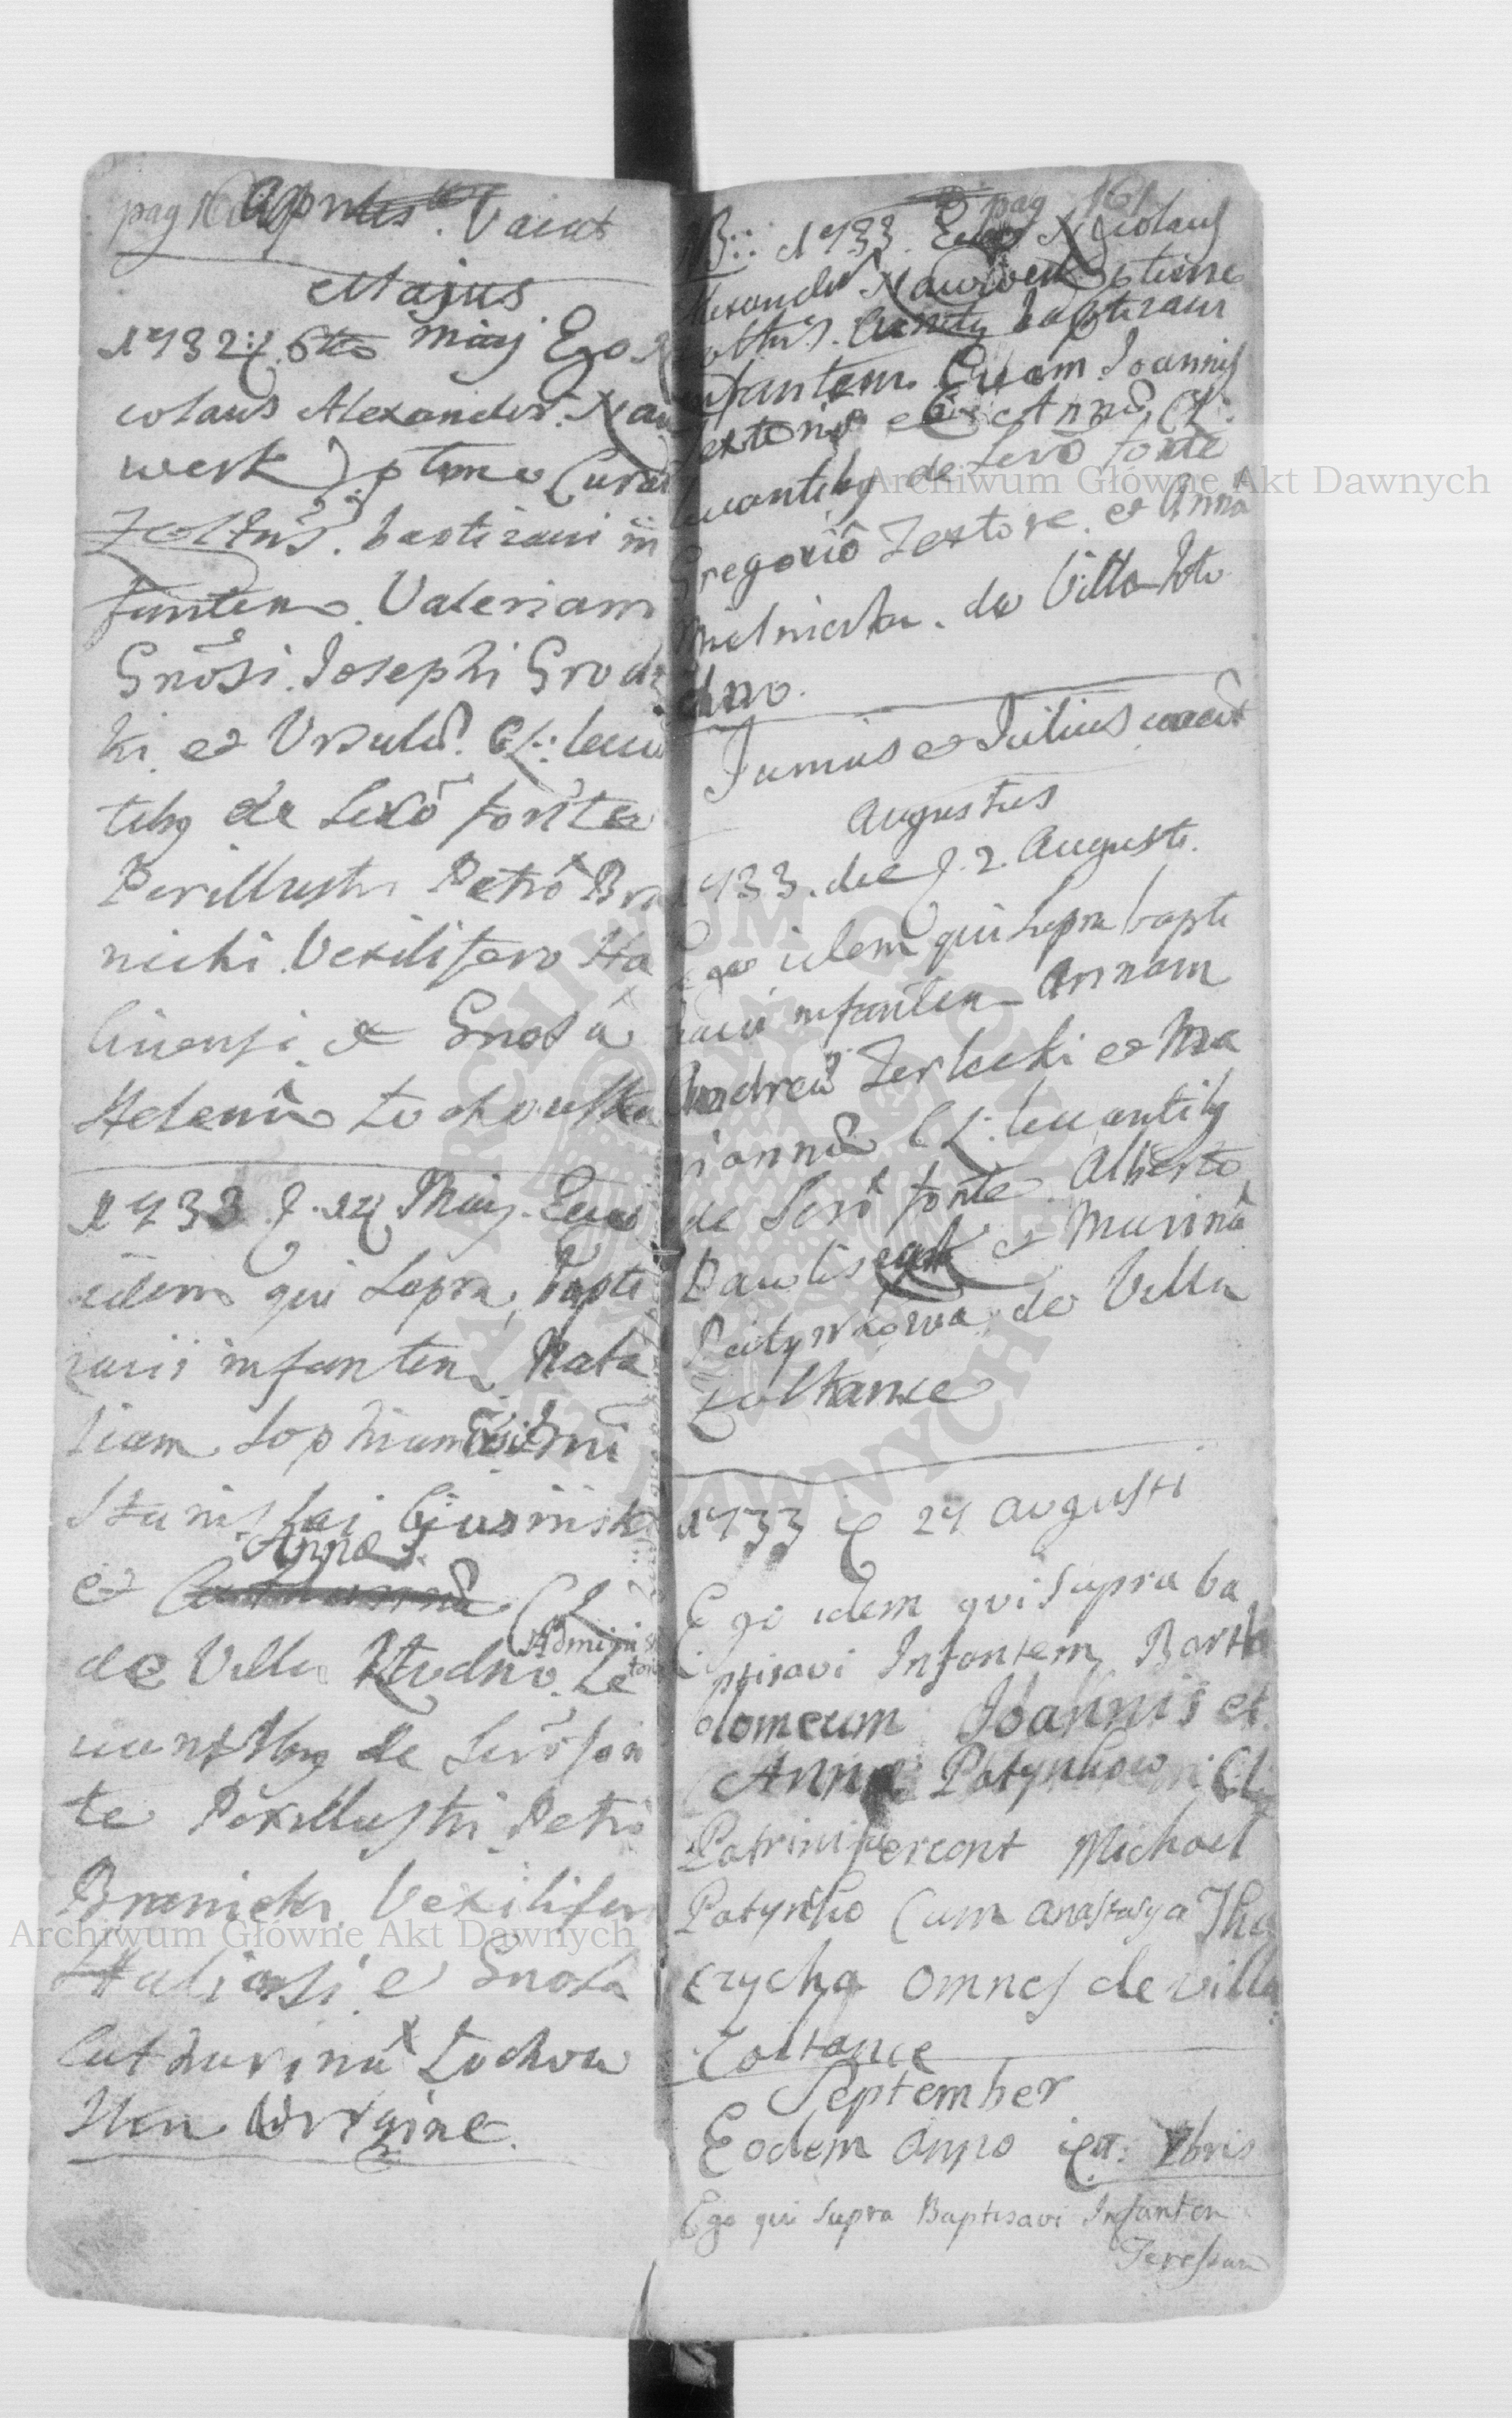 pag 160 Aprilis Vacat
Majus
1733 6to Maij Ego Ni
colaus Alexander Naw
werk ptunc Curat
Zoltus. baptizavi in
fantem Valeriam
Gnosi Josephi Grodz
ki et Ursulæ CL: leva
tibq de Sexo fonte
Perillustri Petro Bra
nicki Vexilifero Ha
liciensi et Gnosa
Helena Lochowska
1733 14 Maij Ego
idem qui Supra bapti
zavi infantem Nata
liam Sophiam Gnosi Dni
Stanislai
Annæ
et CL
Adminis
trato
de Villa Rudno Le
vantibq de Sero fon
te Perillustri Petro
Branicki Vexilifero
Haliciensi et Gnosa
Catharina Lochow
ska Virgine.
pag 161
NB:: 1733 Ego Nicolaus
Alexander Nawwerk ptunc
Zoltus. Curatq baptizavi
infantem Evam Joannis
Textoris et Annæ CL:
levantibq de Sero fonte
Gregorio Textore et Anna
Melniczka de Villa Ho
dno.
Junius et Julius vacat
Augustus
1733. die 2. Augusti.
Ego idem qui Supra bapti
zavi infantem Annam
Andreæ Zerlecki et Ma
riannæ CL: levantibq
de Sero fonte Alberto
Pawliszak et Marina
Patynkowa de Villa
Zoltance
1733 24 Augusti
Ego idem qui Supra ba
ptisavi Infantem Bartho
lomeum Joannis et
Annæ Patynkow CL
Patrini fuerunt Michael
Patynko Cum Anastasya
omnes de villa
Zoltance
September
Eodem Anno 7bris
Ego qui Supra Baptisavi Infantem
Teressam
Archiwum Główne Akt Dawnych
Archiwum Główne Akt Dawnych
ARCHIWUM GŁÓWNE AKT DAWNYCH